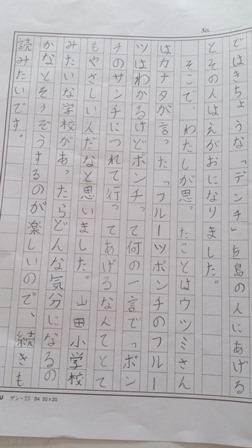 ではきちょうな「デンチ」も島の人にあげる
とその人はえがおになりました。
そこで、わたしが思ったことはウツミさん
はカナタが言った「フルーツポンチのフルー
ツはわかるけどポンチって何の一言で「ポン
チのサンチにつれて行ってあげるなんてとて
もやさしいんだなと思いました。山田小学校
みたいな学校があったらどんな気分になるの
かなとそうぞうするのが楽しいので、続きも
読みたいです。